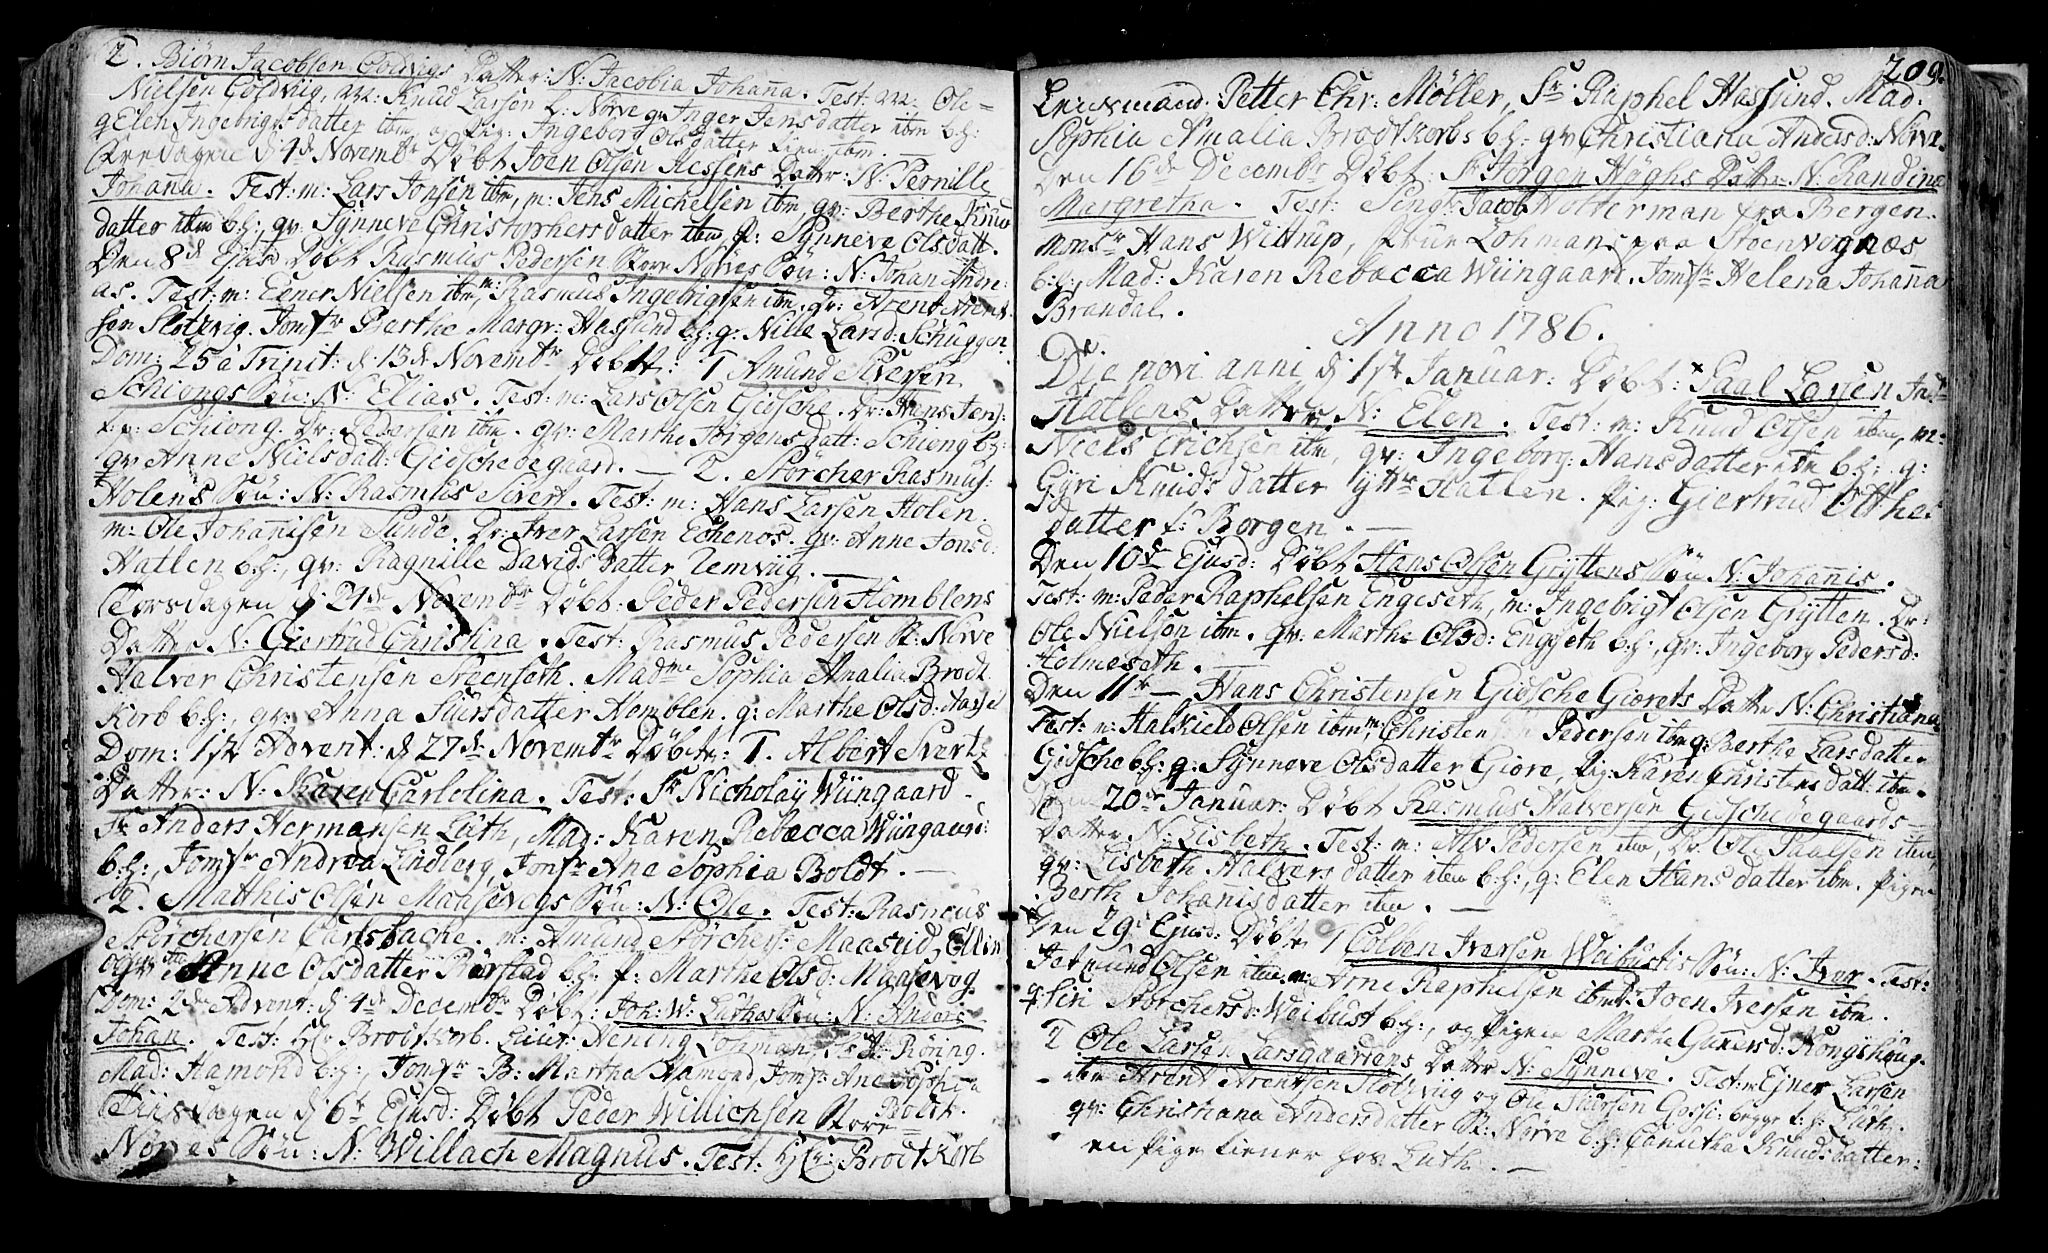 2. Biørn Jacobsen Coldvigs Datter: N: Jacobia Johan̄a. Test: m: Ole
Nielsen Coldvig, m: Knud Larsen L: Nørve qv: Inger Jensdatter ibm b:h:
q Elen Ingebrigtsdatter ibm, og Pig: Ingeborg Olsdatter ibm.
d 4de Novembr Døbt Joen Olsen Aessens Datter: N: Pernille
Johan̄a. Test: m: Lars Jonsen ibm, m: Jens Michelsen ibm qv: Berthe Knuds
datter ibm b:h:, qv: Synneve Christophersdatter ibm p: Synneve Olsdatt.
Den 8de Ejusd Døbt Rasmus Pedersen Store Nørves Søn: N: Johan Andre
as. Test: m: Einer Nielsen ibm, m: Rasmus Ingebrigtsen ibm, Dr: Arent Arent
sen Slotvig. Jomfr Berthe Margr: Haslund b:h: q: Nille Larsd: Schuggen
Dom: 25 à Trinit: d 13de Novembr Døbt: 1 Amund Sivertsen
Schiongs Søn: N: Elias. Test: m: Lars Olsen Gidsche. Dr: Jens Jens:
Schiong. Dr: Pedersen ibm. qv: Marthe Jørgensdatt: Schiong b:h:
qv Anne Nielsdatt: Gidschedegaard. — 2. Storcher Rasmus:
Holens Søn: N: Rasmus Sivert. Test: m: Hans Larsen Holen.
m: Ole Johan̄isen Sunde. Dr: Iver Larsen Echenos. qv: Anne Jonsd:
Hatlen b:h:, qv: Ragnille Davids Datter Remvug. —
Torsdagen d 24de Novembr Døbt: Peder Pedersen Homblens
Datter N: Giertrud Christina. Test: Rasmus Pedersen St: Nørve
Halver Christensen Steenseth. Madme Sophia Amalia Brodt
Korb b:h:, qv: Anna Siursdatter Homblen. q: Marthe Olsd:
Dom: 1ste Advent: d 27de Novembr Døbt: 1. Albert Svert
Datter: N: Karen Carlolina. Test: Sr Nicholay Wiingaard
Sr Anders Hermansen Lüth, Mad: Karen Rebacca Wiingaard:
b:h:, Jomfr Andrea Lindberg, Jomfr Ane Sophia Boldt. —
2. Matthis Olsen Maasevogs Søn: N: Ole. Test: Rasmus
Storchersen Carlsbache. m: Amund Storchers: Maaseid,
qv: Anne Olsdatter Rørstad b:h: p: Marthe Olsd: Maasevog.
Dom: 2den Advent: d 4de Decembr Døbt: Joh: W: Lüthes Søn: N: Anders
Johan. Test: Hr Brodtkorb. Hening Lohman, Røring.
Mad: Hamond b:h:, Jomfr B: Martha Hamond, Jomfr: Ane Sophia
Boldt.
Tiirsdagen d 6te Ejusd: Døbt Peder Willichsen Store
Nørves Søn: N: Willach Magnus. Test: Hr: Brodtkorb
209.
Petter Chr: Möller, Sr Raphel Haslund. Mad.
Sophia Amalia Brodtkorbs b:h: qv Christiana Andersd: Nørve.
Den 16de Decembr Døbt: Sr Jørgen Høghs Datter N: Randine
Margretha. Test: Jacob Holterman fra Bergen.
Monsr Hans Wiltrup, Lohmans paa Stoenvognæs
b:h:, Mad: Karen Rebacca Wiingaard. Jomfr Helena Johan̄a
Brandal.
Anno 1786.
Die novi anni d 1ste Januar: Døbt: Paal Larsen
Hatlens Datter N: Elen. Test: m: Knud Olsen ibm, m:
Niels Erichsen ibm, qv: Ingeborg: Hansdatter ibm b:h: q:
Gyri Knuds datter Yttre Hatlen. Pig: Giertrud Otthes
datter f: Borgen. —
Den 10de Ejusd: Døbt Hans Olsen Gryttens Søn N: Johan̄is.
Test: m: Peder Raphelsen Engeseth, m: Ingebrigt Olsen Grytten. Dr:
Ole Nielsen ibm. qv: Marthe Olsd: Engseth b:h:, qv: Ingeborg Pedersd:
Holmeseth. —
Den 11te — Hans Christensen Gidsche Giørets Datter N: Christiana
Test: m: Halkield Olsen ibm, m: Christen Pedersen ibm q: Berthe Larsdatter
Gidsche b:h: q: Synneve Olsdatter Giøre, Pig: Karen Christensdatt: ibm.
20de Januar: Døbt Rasmus Halversen Gidschedegaards
Datter N: Lisbeth. Test: m: Alv Pedersen ibm, Dr: Ole Paalsen ibm,
qv: Lisbeth Halvers datter ibm b:h:, q: Elen Hans datter ibm. Pigen
Berth Johan̄isdatter ibm. —
Den 29de Ejusd: Døbt 1 Colben Iversen Weibusts Søn: N: Iver. Test:
Jetmund Olsen ibm. m: Arne Raphelsen ibm Dr: Joen Iversen ibm.
q Siri Storchersd: Weibust b:h:, og Pigen Marthe Gun̄ersd: Kongshoug.
2 Ole Larsen Larsgaardens Datter N: Synneve. Test: m Ejner Larsen
ibm Arent Arentsen Slotviig og Ole Siursen begge t:h: Lüth.
qv: Christiana Andersdatter St: Nørve b:h: Canutha Knudsdatter:
en Pige tiener hos Luth. —